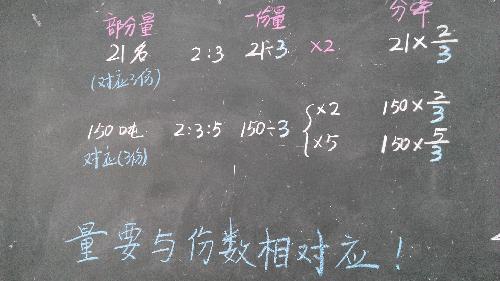 部分量 一份量 分率
21名 2:3 21÷3 ×2 21×2/3
(对应3份)
150吨 2:3:5 150÷3 ×2 150×2/3
对应(3份) ×5 150×5/3
量要与份数相对应！